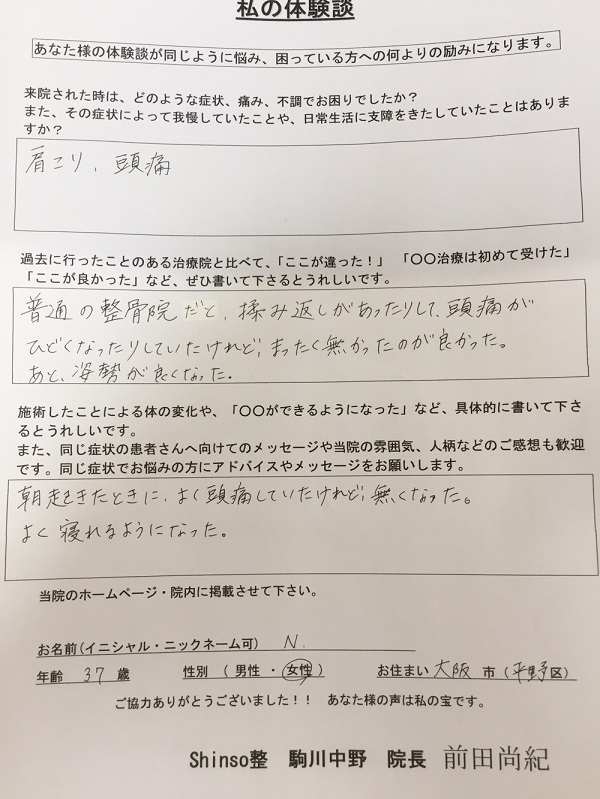 私の体験談
あなた様の体験談が同じように悩み、困っている方への何よりの励みになります。
来院された時は、どのような症状、痛み、不調でお困りでしたか？
また、その症状によって我慢していたことや、日常生活に支障をきたしていたことはありま
すか？
肩こり、頭痛
過去に行ったことのある治療院と比べて、「ここが違った！」 「〇〇治療は初めて受けた」
「ここが良かった」など、ぜひ書いて下さるとうれしいです。
普通の整骨院だと、揉み返しがあったりして、頭痛が
ひどくなったりしていたけれど、まったく無かったのが良かった。
あと、姿勢が良くなった。
施術したことによる体の変化や、「〇〇ができるようになった」など、具体的に書いて下さ
るとうれしいです。
また、同じ症状の患者さんへ向けてのメッセージや当院の雰囲気、人柄などのご感想も歓迎
です。同じ症状でお悩みの方にアドバイスやメッセージをお願いします。
朝起きたときに、よく頭痛していたけれど、無くなった。
よく寝れるようになった。
当院のホームページ・院内に掲載させて下さい。
お名前(イニシャル・ニックネーム可) N.
年齢 37 歳 性別 （ 男性 ・ 女性 ） お住まい 大阪 市 （ 平野 区）
ご協力ありがとうございました！！ あなた様の声は私の宝です。
Shinso整 駒川中野 院長 前田尚紀